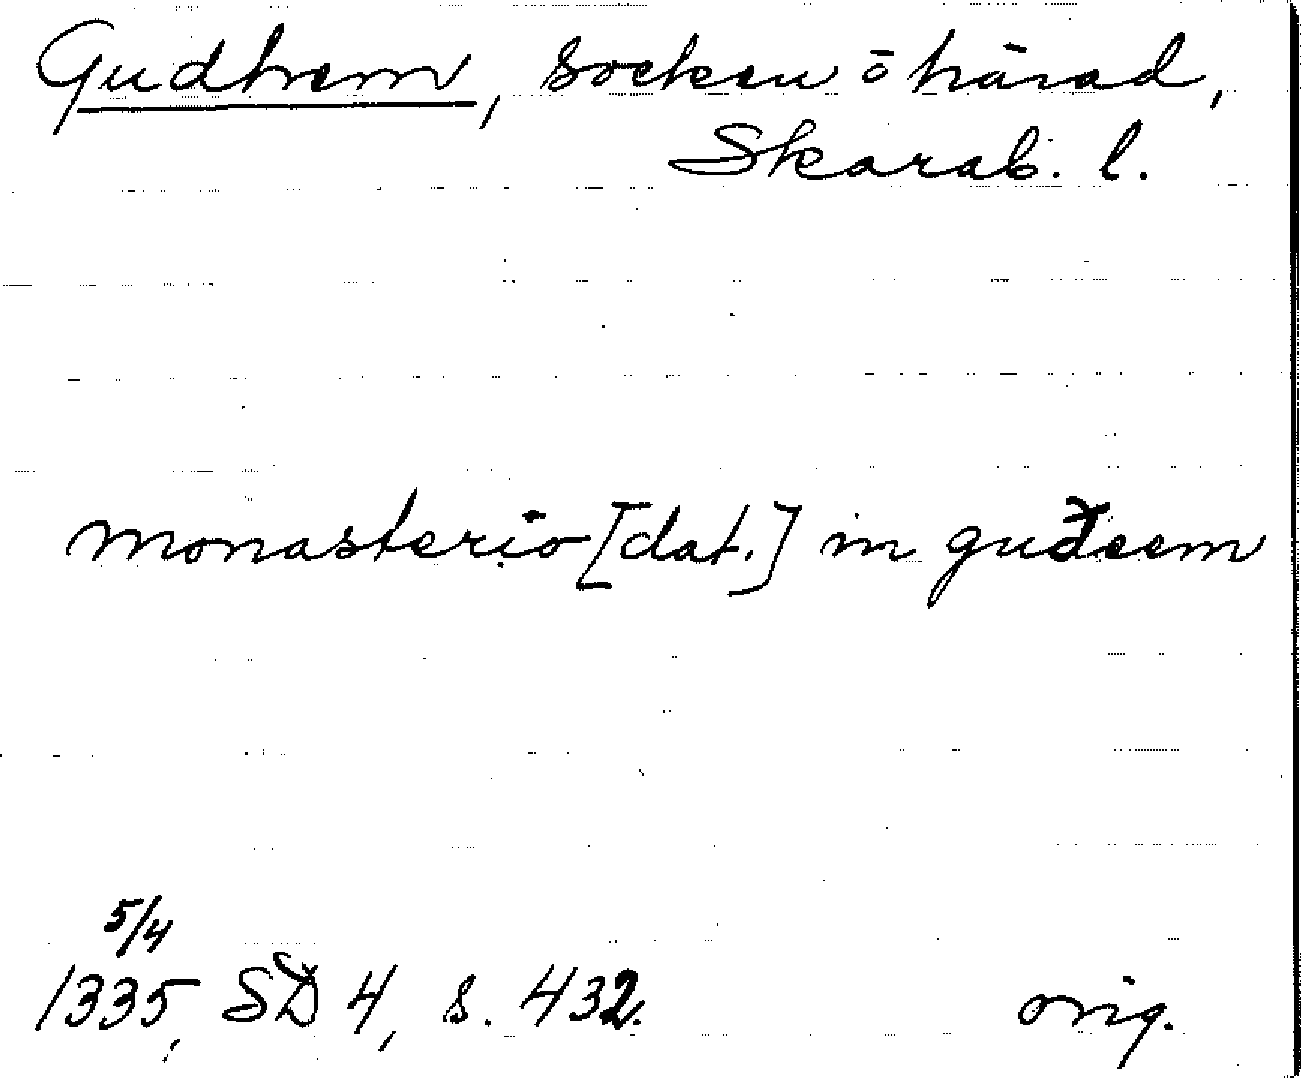 Gudhem, socken ō härad,
Skarab. l.
monasterio [dat.] in guđeem
5/4
1335, SD 4, s. 432.
orig.